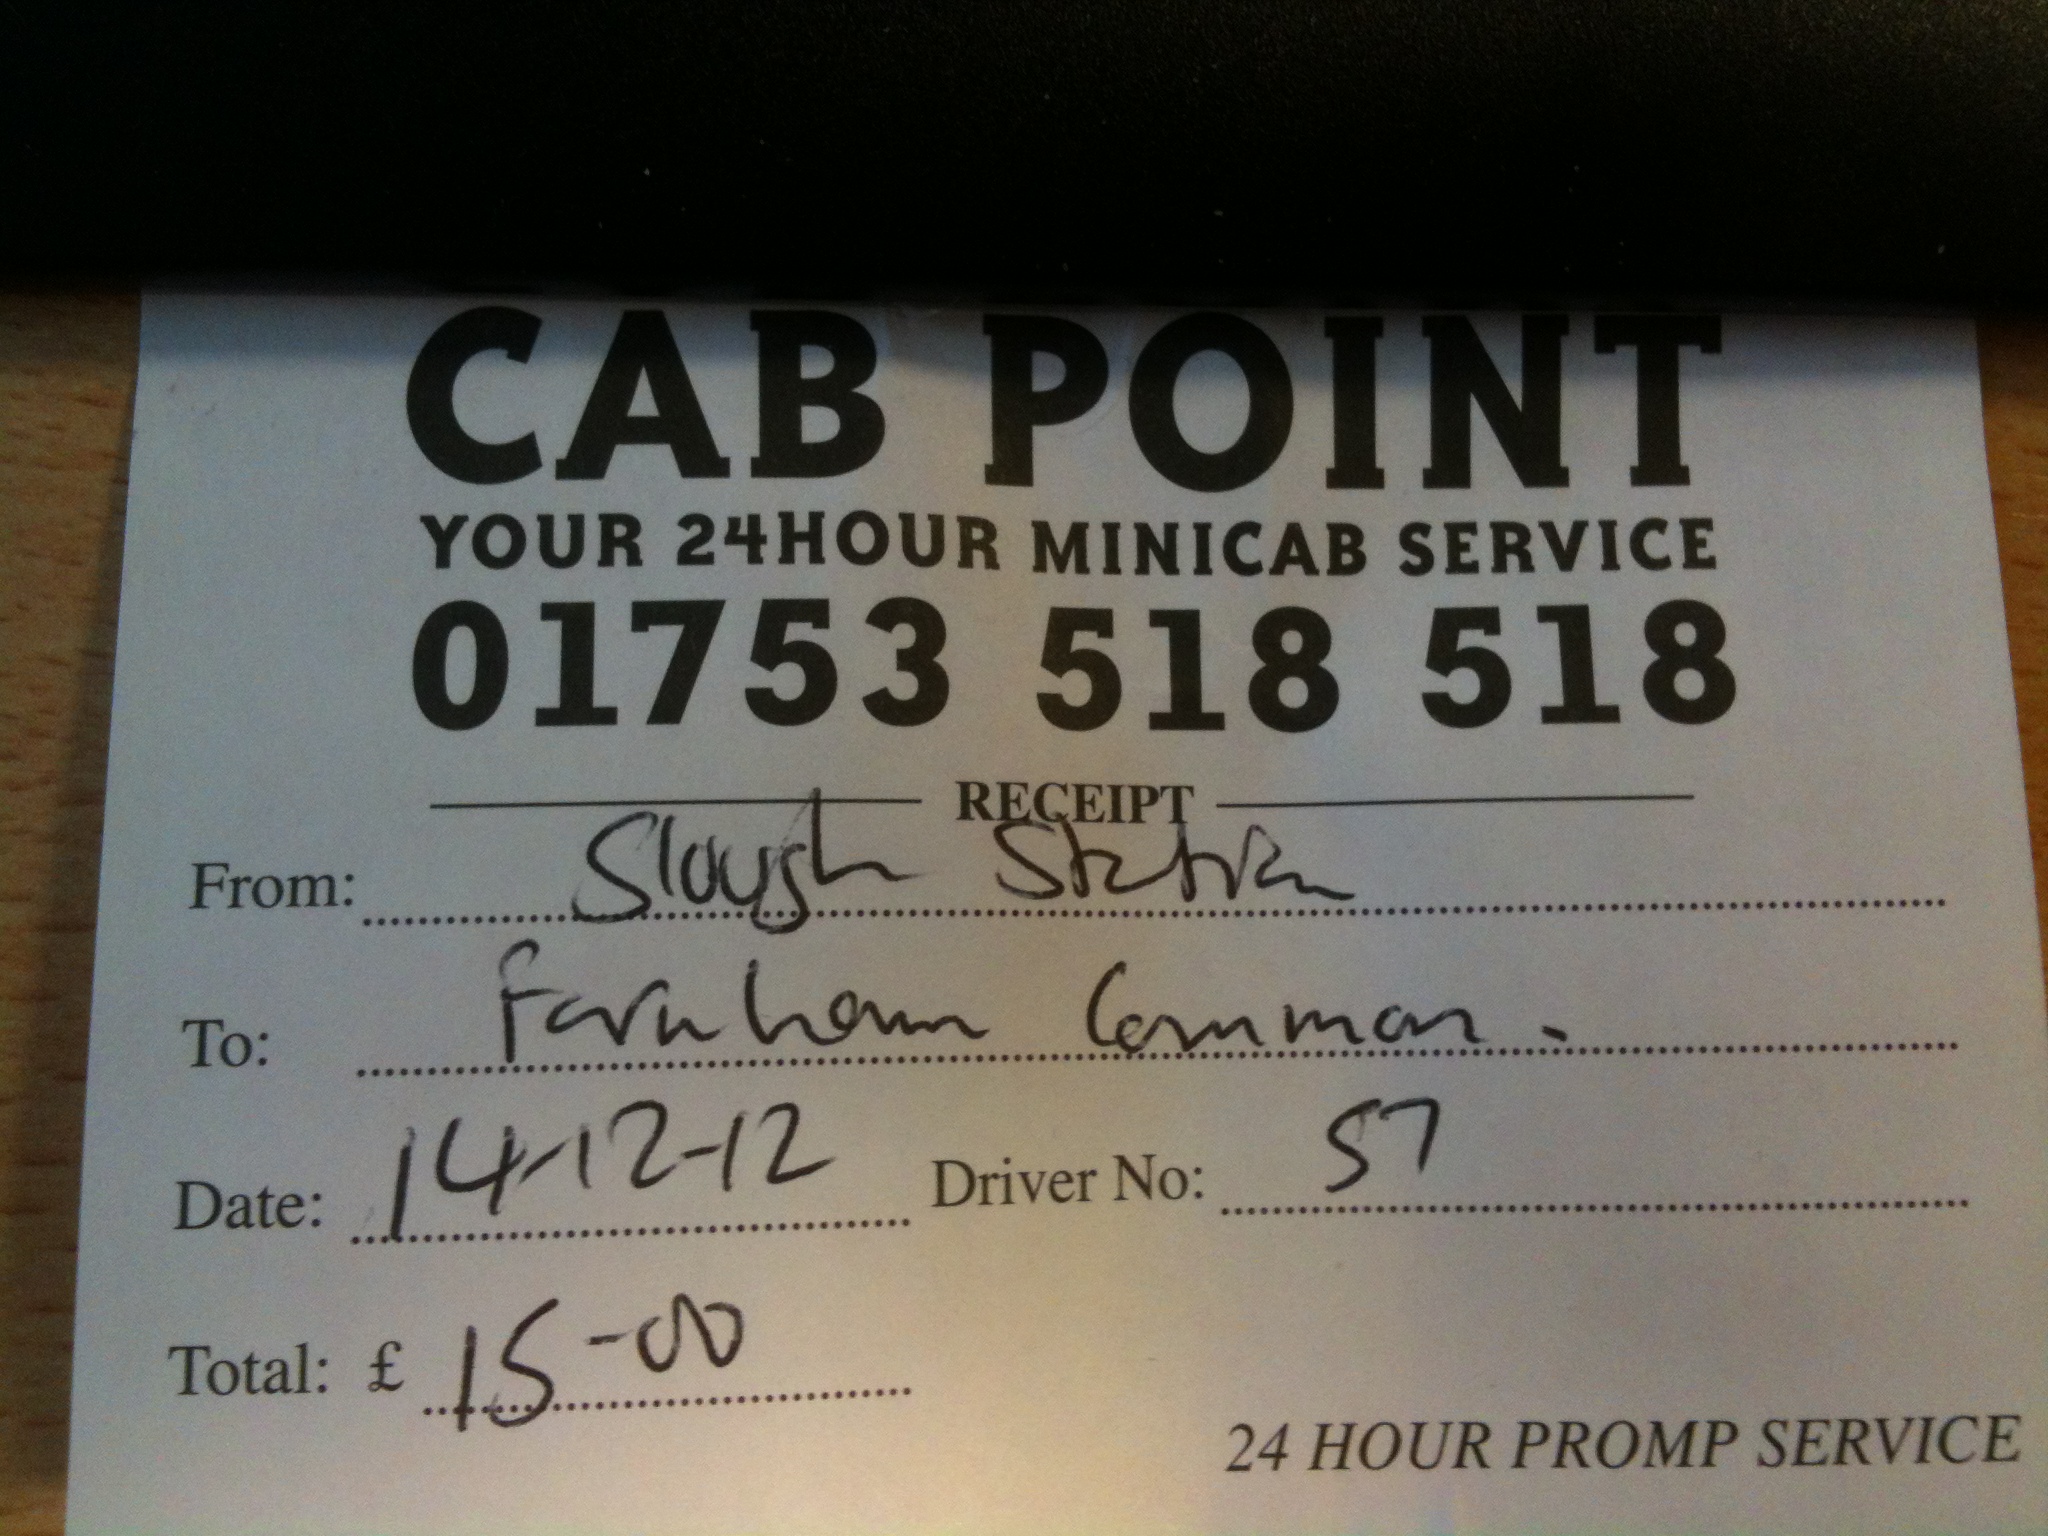 CAB POINT
YOUR 24HOUR MINICAB SERVICE
01753 518 518
RECEIPT
From: Slough Station
To: Farnham Common.
Date: 14-12-12 Driver No: 57
Total: £ 15-00
24 HOUR PROMP SERVICE